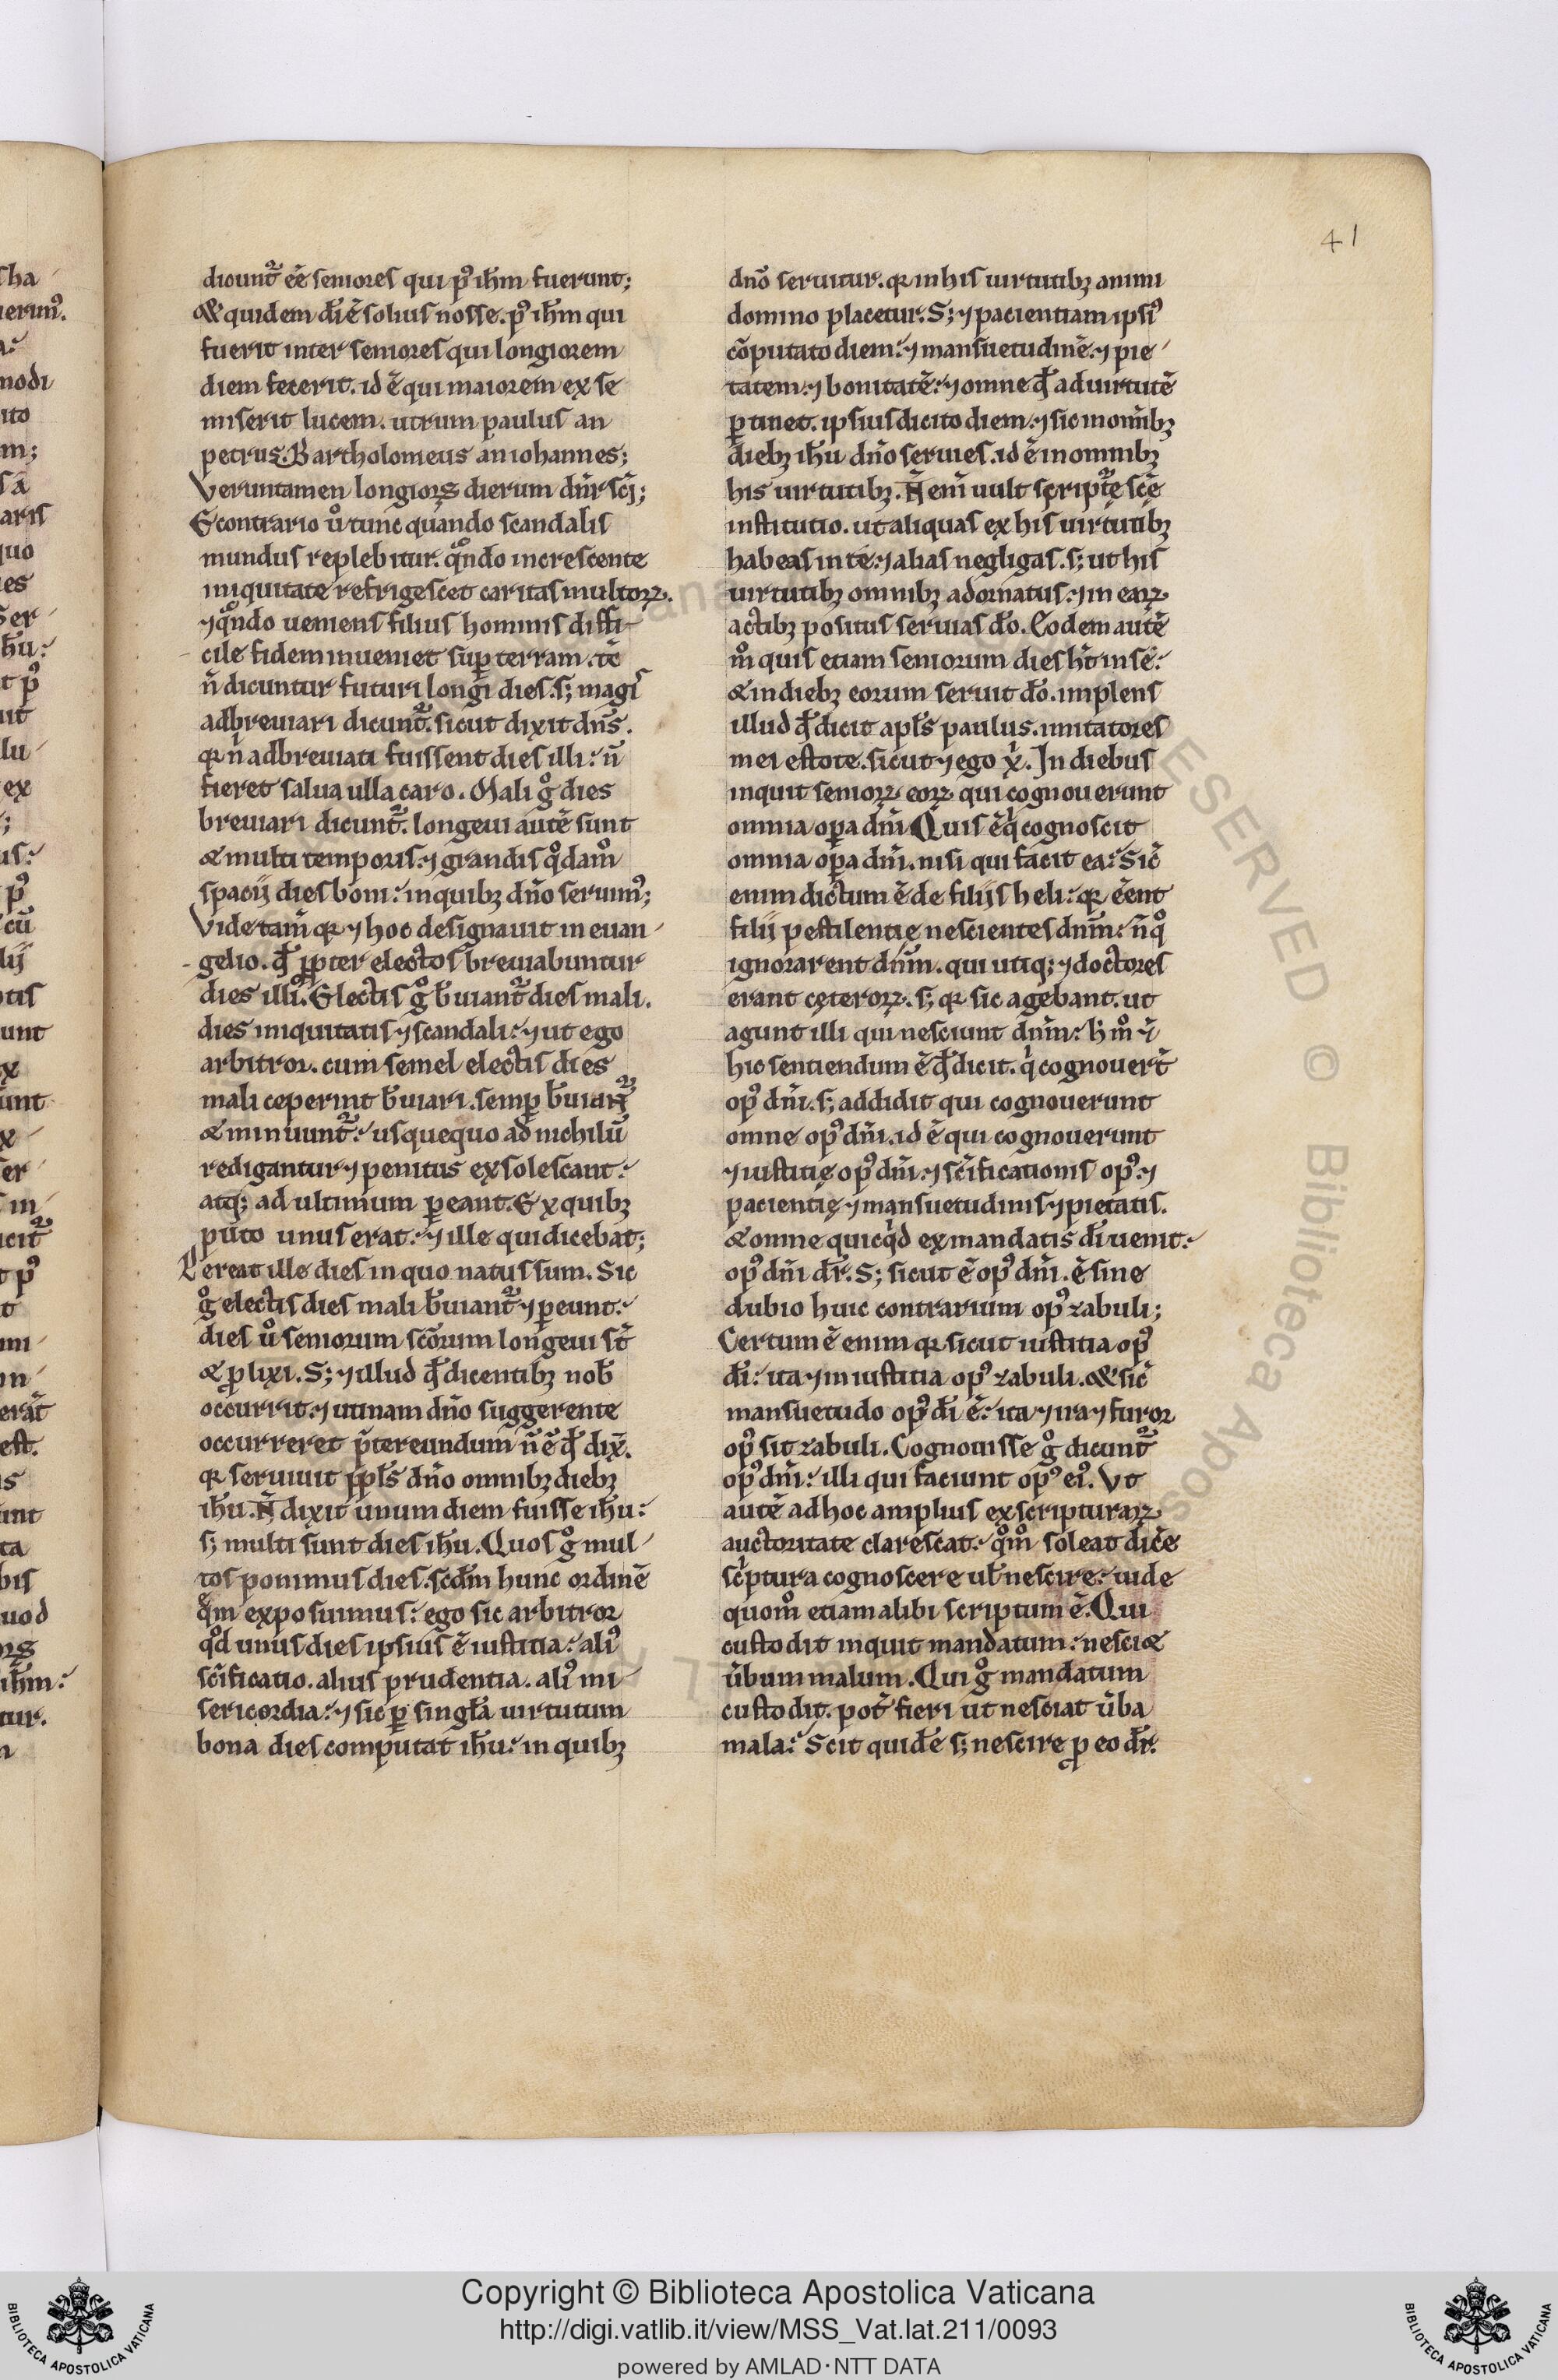 41
dicunt᷑ eē seniores qui p᷒ ih̄m fuerunt;
& quidem dī ē solius nosse. p᷒ ih̄m qui
fuerit inter seniores qui longiorem
diem fecerit. id ē qui maiorem ex se
miserit lucem. utrum paulus an
petrus. Bartholomeus an iohannes;
Veruntamen longiorꝝ dierum dn̄r sc̄i;
E contrario u̾ tunc quando scandalis
mundus replebitur. qn̊do increscente
iniquitate refrigescet caritas multoꝝ.
⁊ qn̊do ueniens filius hominis diffi-
cile fidem inueniet suꝑ terram. tc̄
n̄ dicuntur futuri longi dies. s; magis
adbreuiari dicunt᷑. sicut dixit dn̄s.
qr n̄ adbreuiati fuissent dies illi: n̄
fieret salua ulla caro. Mali g̊ dies
breuiari dicunt᷑. longeui autē sunt
& multi temporis: ⁊ grandis qͦdam̊
spacij dies boni: in quibꝫ dn̄o seruim᷒;
Vide tam̄ qr ⁊ hoc designauit in euan-
gelio. qd̄ ꝓpter electos breuiabuntur
dies illi. Electis g̊ b̄uiant᷑ dies mali.
dies iniquitatis ⁊ scandali: ⁊ ut ego
arbitror. cum semel electis dies
mali ceperint b̄uiari. semꝑ b̄uiant᷑
& minuunt᷑: usquequo ad nichilū
redigantur ⁊ penitus exsolescant:
atq; ad ultimum ꝑeant. Ex quibꝫ
puto unus erat: ⁊ ille qui dicebat;
Pereat ille dies in quo natus sum. Sic
g̊ electis dies mali b̄uiant᷑ ⁊ ꝑeunt:
dies u̾ seniorum sc̄orum longeui st̄
& ꝓlixi. S; ⁊ illud qd̄ dicentibꝫ nob̄
occurrit: ⁊ utinam dn̄o suggerente
occurreret p̄tereundum n̄ ē qd̄ dix̄.
qr seruiuit ppl̄s dn̄o omnibꝫ diebꝫ
ih̄u. N̄ dixit unum diem fuisse ih̄u:
s; multi sunt dies ih̄u. Quos g̊ mul-
tos ponimus dies. scd̄m hunc ordinē
q̄m exposuimus: ego sic arbitror
qͦd unus dies ipsius ē iustitia: ali᷒
sc̄ificatio. alius prudentia. ali᷒ mi-
sericordia: ⁊ sic ꝑ singl̄a uirtutum
bona dies computat ih̄u: in quibꝫ
dn̄o seruitur. qr in his uirtutibꝫ animi
domino placetur. S; ⁊ pacientiam ipsi᷒
cōputato diem: ⁊ mansuetudinē. ⁊ pie-
tatem: ⁊ bonitatē: ⁊ omne qd̄ ad uirtutē
ꝑtinet. ipsius dicito diem: ⁊ sic in om̄ibꝫ
diebꝫ ih̄u dn̄o seruies. id ē in omnibꝫ
his uirtutibꝫ. N̄ eni̅ uult scriptᷓę scę̄
institutio. ut aliquas ex his uirtutibꝫ
habeas in te: ⁊ alias negligas. s; ut his
uirtutibꝫ omnibꝫ adornatus: ⁊ in eaꝝ
actibꝫ positus seruias dō. Eodem autē
m̊ quis etiam seniorum dies ht̄ in se:
& in diebꝫ eorum seruit dō. implens
illud qd̄ dicit apl̄s paulus. imitatores
mei estote. sicut ⁊ ego x̄. In diebus
inquit senioꝝ eoꝝ qui cognouerunt
omnia oꝑa dn̄i. Quis ē qͥ cognoscit
omnia oꝑa dn̄i. nisi qui facit ea: Sic̄
enim dictum ē de filijs heli: qr ēent
filij pestilentię nescientes dn̄m: n̄ qͦ
ignorarent dn̄m. qui utiq; ⁊ doctores
erant cęteroꝝ. s; qr sic agebant. ut
agunt illi qui nesciunt dn̄m: h̄ m̊ ⁊
hic sentiendum ē qd̄ dicit. qͥ cognouert̄
op᷒ dn̄i. s; addidit qui cognouerunt
omne op᷒ dn̄i. id ē qui cognouerunt
⁊ iustitię op᷒ dn̄i. ⁊ sc̄ificationis op᷒. ⁊
pacientię ⁊ mansuetudinis ⁊ pietatis.
& omne quicqͥd ex mandatis dī uenit:
op᷒ dn̄i dr̄. S; sicut ē op᷒ dn̄i. ē sine
dubio huic contrarium op᷒ zabuli;
Certum ē enim qr sicut iustitia op᷒
dī: ita ⁊ iniustitia op᷒ zabuli. & sic̄
mansuetudo op᷒ dī ē: ita ⁊ ira ⁊ furor
op᷒ sit zabuli. Cognouisse g̊ dicunt᷑
op᷒ dn̄i: illi qui faciunt op᷒ ei᷒. Vt
autē ad hoc amplius ex scripturaꝝ
auctoritate clarescat: qm̊ soleat dicē
scͥptura cognoscere ul̄ nescire: uide
quom̊ etiam alibi scriptum ē. Qui
custodit inquit mandatum: nesci&
ūbum malum. Qui g̊ mandatum
custodit. pot̄ fieri ut nesciat ūba
mala: Scit quidē s; nescire ꝓ eo dr̄.
Copyright © Biblioteca Apostolica Vaticana
http://digi.vatlib.it/view/MSS_Vat.lat.211/0093
powered by AMLAD·NTT DATA
BIBLIOTECA APOSTOLICA VATICANA
BIBLIOTECA APOSTOLICA VATICANA